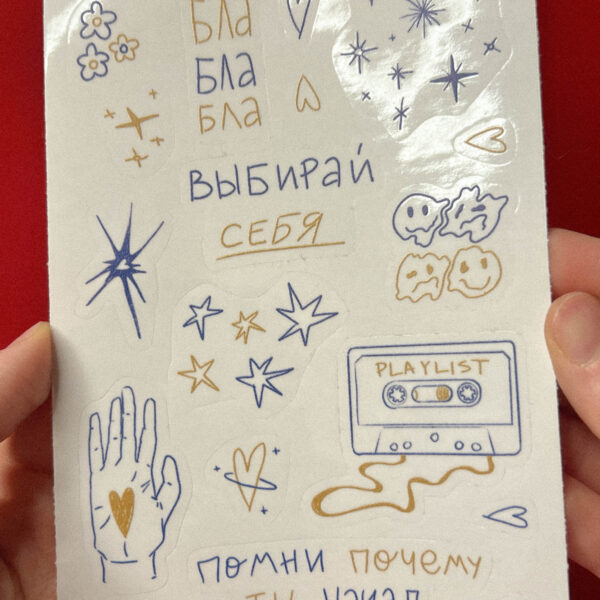 бла
бла
бла
ВЫБИРАЙ
СЕБЯ
PLAYLIST
ПОМНИ ПОЧЕМУ
ТЫ